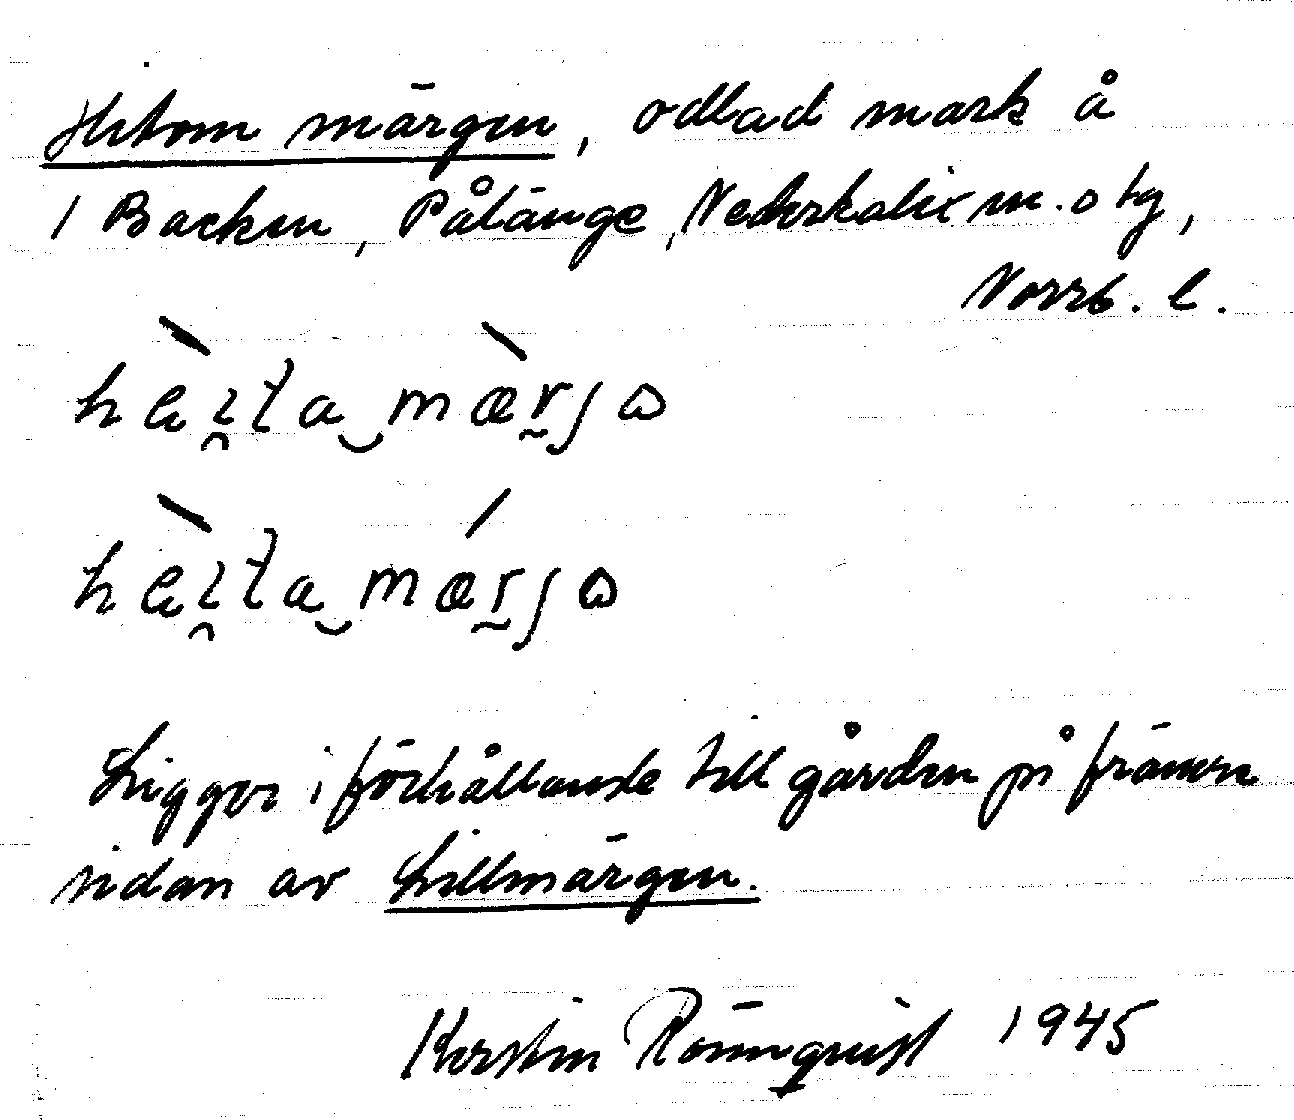 Hitom märgen, odlad mark å
1 Backen, Pålänge, Nederkalix sn. o tg,
Norrb. l.
Ligger i förhållande till gården på främre
sidan av Lillmärgen.
Kerstin Rönnquist 1945